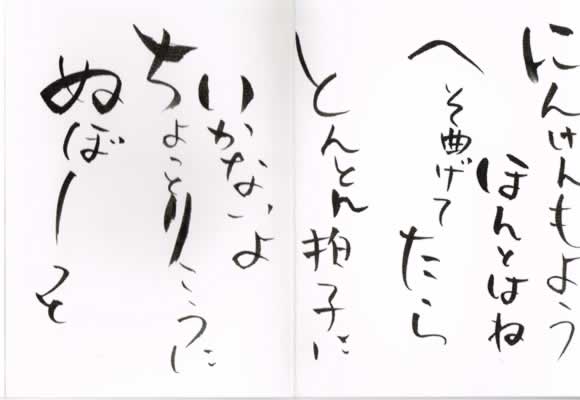 にんけんもよう
ほんとはね
へそ曲げてたら
とんとん拍子に
いかないよ
ちょっとりこうに
ぬぼーっと